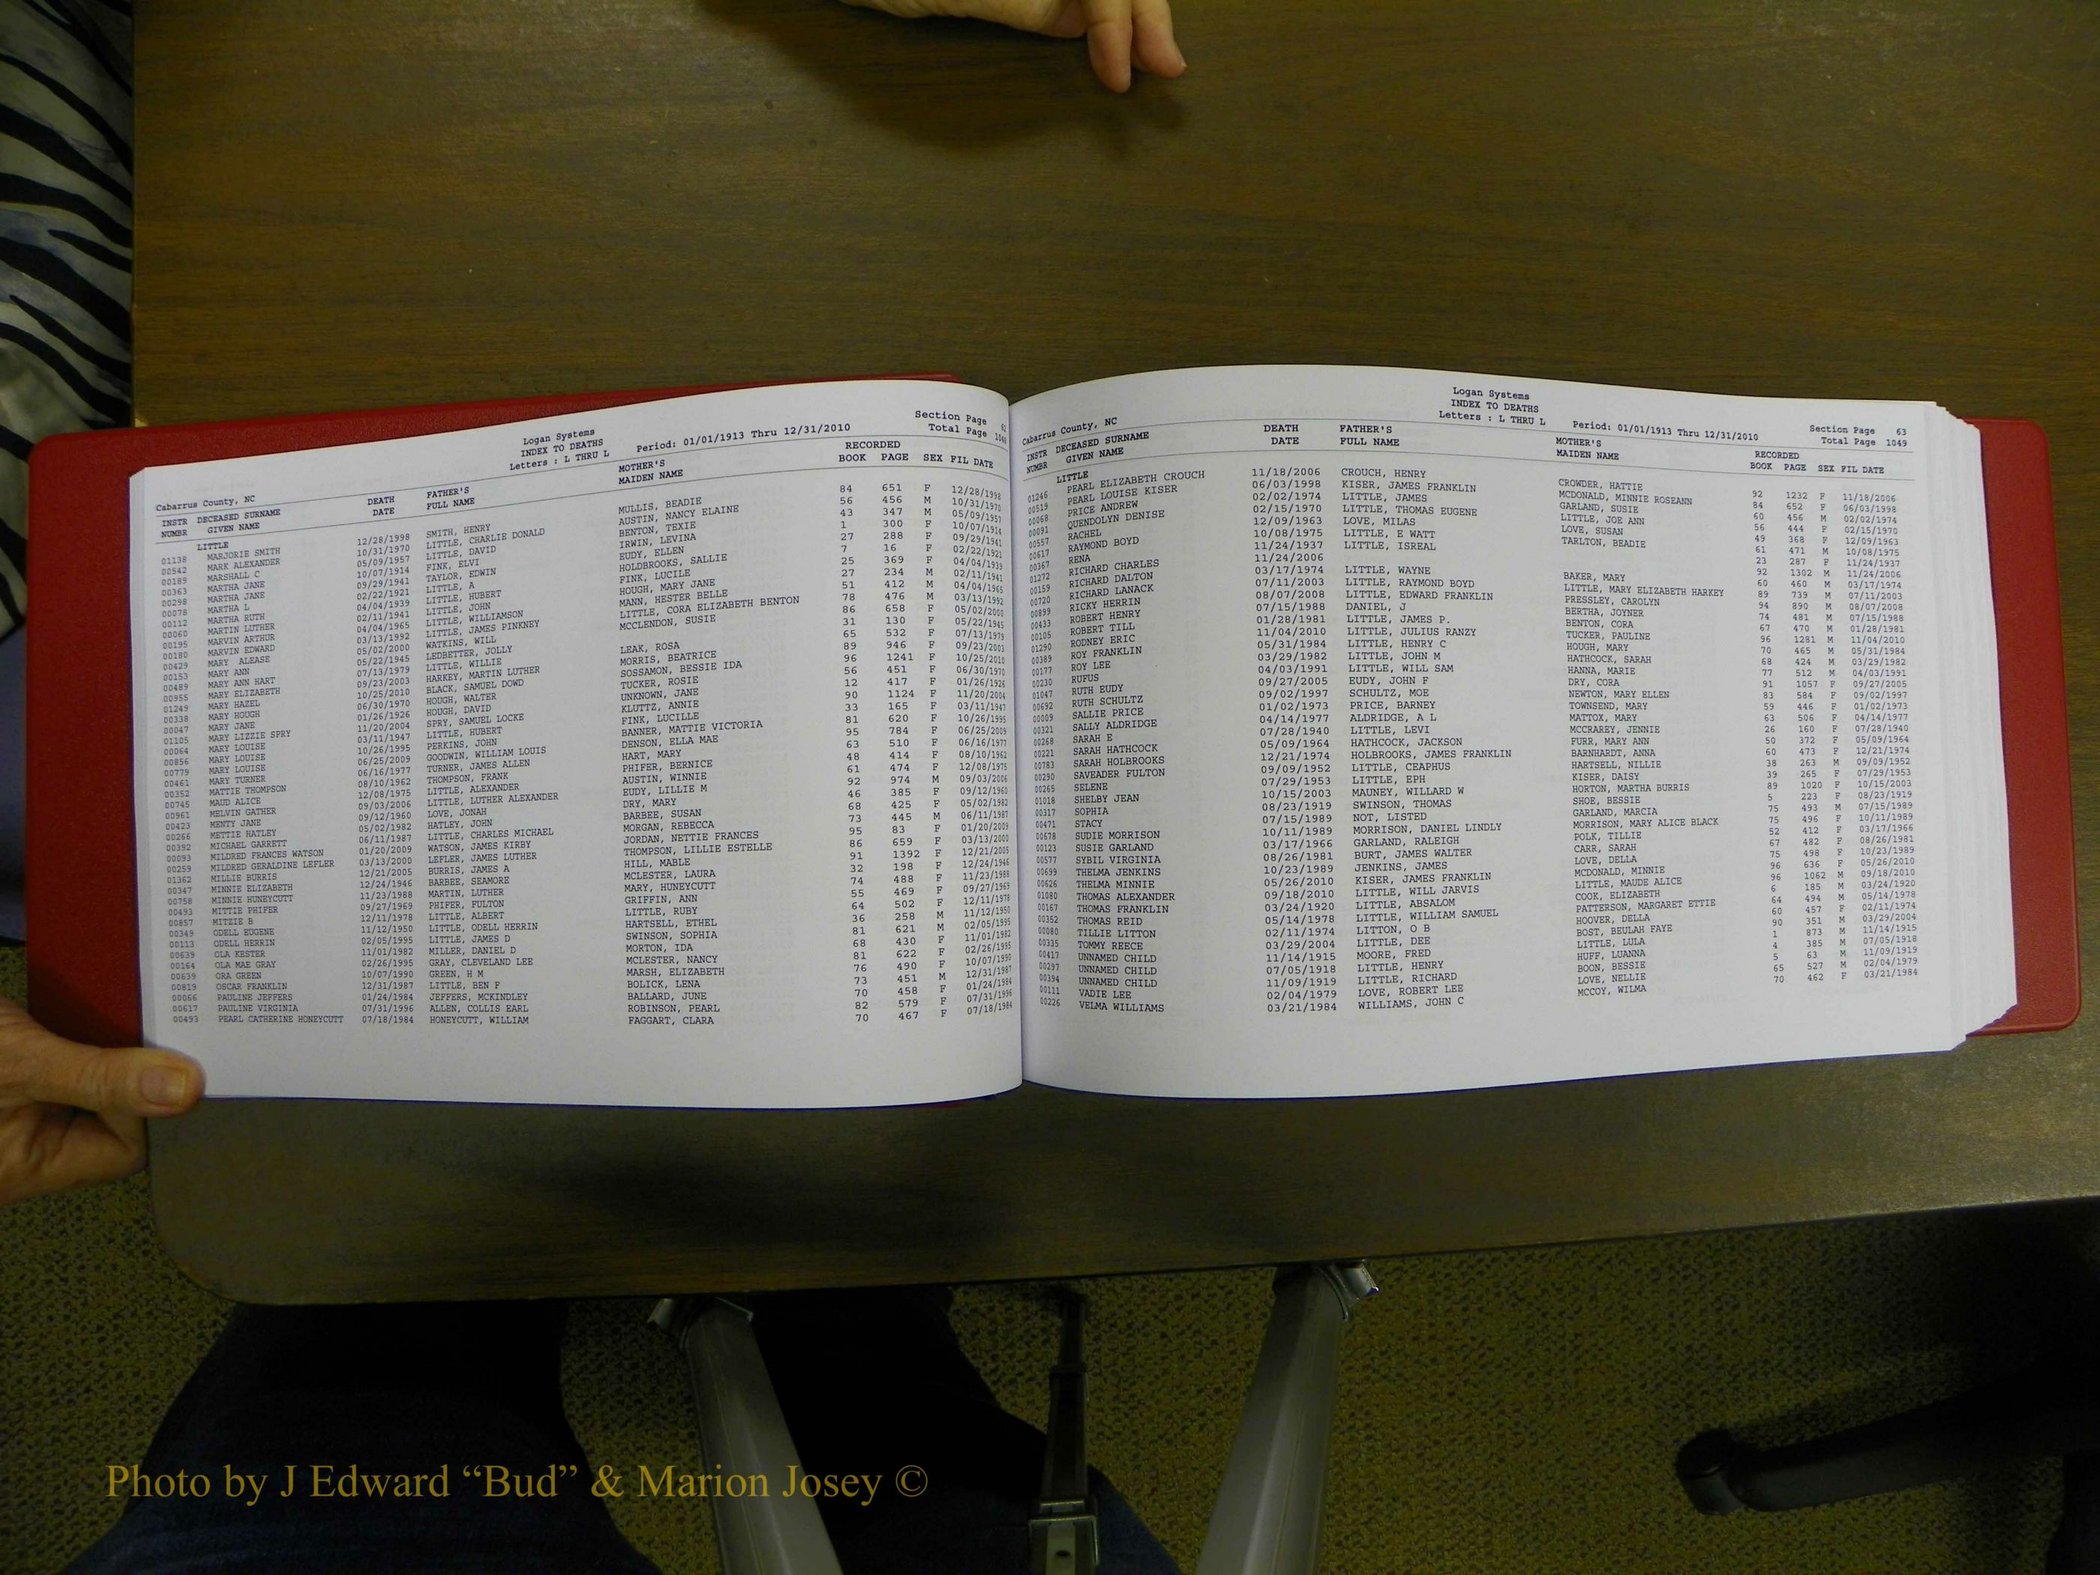 Logan Systems
INDEX TO DEATHS
Letters : L THRU L Period: 01/01/1913 Thru 12/31/2010
Section Page 62
Total Page 1048
Cabarrus County, NC
INSTR DECEASED SURNAME DEATH FATHER'S MOTHER'S RECORDED
NUMBR GIVEN NAME DATE FULL NAME MAIDEN NAME BOOK PAGE SEX FIL DATE
LITTLE
01138 MARJORIE SMITH 12/28/1998 SMITH, HENRY MULLIS, BEADIE 84 651 F 12/28/1998
00542 MARK ALEXANDER 10/31/1970 LITTLE, CHARLIE DONALD AUSTIN, NANCY ELAINE 56 456 M 10/31/1970
00189 MARSHALL C 05/09/1957 LITTLE, DAVID BENTON, TEXIE 43 347 M 05/09/1957
00363 MARTHA JANE 10/07/1914 FINK, ELVI IRWIN, LEVINA 1 300 F 10/07/1914
00298 MARTHA JANE 09/29/1941 TAYLOR, EDWIN EUDY, ELLEN 27 288 F 09/29/1941
00078 MARTHA L 02/22/1921 LITTLE, A HOLDBROOKS, SALLIE 7 16 F 02/22/1921
00112 MARTHA RUTH 04/04/1939 LITTLE, HUBERT FINK, LUCILE 25 369 F 04/04/1939
00060 MARTIN LUTHER 02/11/1941 LITTLE, JOHN HOUGH, MARY JANE 27 234 M 02/11/1941
00195 MARVIN ARTHUR 04/04/1965 LITTLE, WILLIAMSON MANN, HESTER BELLE 51 412 M 04/04/1965
00180 MARVIN EDWARD 03/13/1992 LITTLE, JAMES PINKNEY LITTLE, CORA ELIZABETH BENTON 78 476 M 03/13/1992
00429 MARY ALEASE 05/02/2000 WATKINS, WILL MCCLENDON, SUSIE 86 658 F 05/02/2000
00153 MARY ANN 05/22/1945 LEDBETTER, JOLLY 31 130 F 05/22/1945
00489 MARY ANN HART 07/13/1979 LITTLE, WILLIE LEAK, ROSA 65 532 F 07/13/1979
00955 MARY ELIZABETH 09/23/2003 HARKEY, MARTIN LUTHER MORRIS, BEATRICE 89 946 F 09/23/2003
01249 MARY HAZEL 10/25/2010 BLACK, SAMUEL DOWD SOSSAMON, BESSIE IDA 96 1241 F 10/25/2010
00338 MARY HOUGH 06/30/1970 HOUGH, WALTER TUCKER, ROSIE 56 451 F 06/30/1970
00047 MARY JANE 01/26/1926 HOUGH, DAVID UNKNOWN, JANE 12 417 F 01/26/1926
01105 MARY LIZZIE SPRY 11/20/2004 SPRY, SAMUEL LOCKE KLUTTZ, ANNIE 90 1124 F 11/20/2004
00064 MARY LOUISE 03/11/1947 LITTLE, HUBERT FINK, LUCILLE 33 165 F 03/11/1947
00856 MARY LOUISE 10/26/1995 PERKINS, JOHN BANNER, MATTIE VICTORIA 81 620 F 10/26/1995
00779 MARY LOUISE 06/25/2009 GOODWIN, WILLIAM LOUIS DENSON, ELLA MAE 95 784 F 06/25/2009
00461 MARY TURNER 06/16/1977 TURNER, JAMES ALLEN HART, MARY 63 510 F 06/16/1977
00352 MATTIE THOMPSON 08/10/1962 THOMPSON, FRANK PHIFER, BERNICE 48 414 F 08/10/1962
00745 MAUD ALICE 12/08/1975 LITTLE, ALEXANDER AUSTIN, WINNIE 61 474 F 12/08/1975
00961 MELVIN GATHER 09/03/2006 LITTLE, LUTHER ALEXANDER EUDY, LILLIE M 92 974 M 09/03/2006
00423 MENTY JANE 09/12/1960 LOVE, JONAH DRY, MARY 46 385 F 09/12/1960
00266 METTIE HATLEY 05/02/1982 HATLEY, JOHN BARBEE, SUSAN 68 425 F 05/02/1982
00392 MICHAEL GARRETT 06/11/1987 LITTLE, CHARLES MICHAEL MORGAN, REBECCA 73 445 M 06/11/1987
00093 MILDRED FRANCES WATSON 01/20/2009 WATSON, JAMES KIRBY JORDAN, NETTIE FRANCES 95 83 F 01/20/2009
00259 MILDRED GERALDINE LEFLER 03/13/2000 LEFLER, JAMES LUTHER THOMPSON, LILLIE ESTELLE 86 659 F 03/13/2000
01362 MILLIE BURRIS 12/21/2005 BURRIS, JAMES A HILL, MABLE 91 1392 F 12/21/2005
00347 MINNIE ELIZABETH 12/24/1946 BARBEE, SEAMORE MCLESTER, LAURA 32 198 F 12/24/1946
00758 MINNIE HUNEYCUTT 11/23/1988 MARTIN, LUTHER MARY, HUNEYCUTT 74 488 F 11/23/1988
00493 MITTIE PHIFER 09/27/1969 PHIFER, FULTON GRIFFIN, ANN 55 469 F 09/27/1969
00857 MITZIE B 12/11/1978 LITTLE, ALBERT LITTLE, RUBY 64 502 F 12/11/1978
00349 ODELL EUGENE 11/12/1950 LITTLE, ODELL HERRIN HARTSELL, ETHEL 36 258 M 11/12/1950
00113 ODELL HERRIN 02/05/1995 LITTLE, JAMES D SWINSON, SOPHIA 81 621 M 02/05/1995
00639 OLA KESTER 11/01/1982 MILLER, DANIEL D MORTON, IDA 68 430 F 11/01/1982
00164 OLA MAE GRAY 02/26/1995 GRAY, CLEVELAND LEE MCLESTER, NANCY 81 622 F 02/26/1995
00639 ORA GREEN 10/07/1990 GREEN, H M MARSH, ELIZABETH 76 490 F 10/07/1990
00819 OSCAR FRANKLIN 12/31/1987 LITTLE, BEN F BOLICK, LENA 73 451 M 12/31/1987
00066 PAULINE JEFFERS 01/24/1984 JEFFERS, MCKINDLEY BALLARD, JUNE 70 458 F 01/24/1984
00617 PAULINE VIRGINIA 07/31/1996 ALLEN, COLLIS EARL ROBINSON, PEARL 82 579 F 07/31/1996
00493 PEARL CATHERINE HONEYCUTT 07/18/1984 HONEYCUTT, WILLIAM FAGGART, CLARA 70 467 F 07/18/1984
Logan Systems
INDEX TO DEATHS
Letters : L THRU L Period: 01/01/1913 Thru 12/31/2010
Section Page 63
Total Page 1049
Cabarrus County, NC
INSTR DECEASED SURNAME DEATH FATHER'S MOTHER'S RECORDED
NUMBR GIVEN NAME DATE FULL NAME MAIDEN NAME BOOK PAGE SEX FIL DATE
LITTLE
01246 PEARL ELIZABETH CROUCH 11/18/2006 CROUCH, HENRY CROWDER, HATTIE 92 1232 F 11/18/2006
00519 PEARL LOUISE KISER 06/03/1998 KISER, JAMES FRANKLIN MCDONALD, MINNIE ROSEANN 84 652 F 06/03/1998
00068 PRICE ANDREW 02/02/1974 LITTLE, JAMES GARLAND, SUSIE 60 456 M 02/02/1974
00091 QUENDOLYN DENISE 02/15/1970 LITTLE, THOMAS EUGENE LITTLE, JOE ANN 56 444 F 02/15/1970
00557 RACHEL 12/09/1963 LOVE, MILAS LOVE, SUSAN 49 368 F 12/09/1963
00617 RAYMOND BOYD 10/08/1975 LITTLE, E WATT TARLTON, BEADIE 61 471 M 10/08/1975
00367 RENA 11/24/1937 LITTLE, ISREAL 23 287 F 11/24/1937
01272 RICHARD CHARLES 11/24/2006 92 1302 M 11/24/2006
00159 RICHARD DALTON 03/17/1974 LITTLE, WAYNE BAKER, MARY 60 460 M 03/17/1974
00720 RICHARD LANACK 07/11/2003 LITTLE, RAYMOND BOYD LITTLE, MARY ELIZABETH HARKEY 89 739 M 07/11/2003
00899 RICKY HERRIN 08/07/2008 LITTLE, EDWARD FRANKLIN PRESSLEY, CAROLYN 94 890 M 08/07/2008
00433 ROBERT HENRY 07/15/1988 DANIEL, J BERTHA, JOYNER 74 481 M 07/15/1988
00105 ROBERT TILL 01/28/1981 LITTLE, JAMES P. BENTON, CORA 67 470 M 01/28/1981
01290 RODNEY ERIC 11/04/2010 LITTLE, JULIUS RANZY TUCKER, PAULINE 96 1281 M 11/04/2010
00389 ROY FRANKLIN 05/31/1984 LITTLE, HENRY C HOUGH, MARY 70 465 M 05/31/1984
00177 ROY LEE 03/29/1982 LITTLE, JOHN M HATHCOCK, SARAH 68 424 M 03/29/1982
00230 RUFUS 04/03/1991 LITTLE, WILL SAM HANNA, MARIE 77 512 M 04/03/1991
01047 RUTH EUDY 09/27/2005 EUDY, JOHN F DRY, CORA 91 1057 F 09/27/2005
00692 RUTH SCHULTZ 09/02/1997 SCHULTZ, MOE NEWTON, MARY ELLEN 83 584 F 09/02/1997
00009 SALLIE PRICE 01/02/1973 PRICE, BARNEY TOWNSEND, MARY 59 446 F 01/02/1973
00321 SALLY ALDRIDGE 04/14/1977 ALDRIDGE, A L MATTOX, MARY 63 506 F 04/14/1977
00268 SARAH E 07/28/1940 LITTLE, LEVI MCCRAREY, JENNIE 26 160 F 07/28/1940
00221 SARAH HATHCOCK 05/09/1964 HATHCOCK, JACKSON FURR, MARY ANN 50 372 F 05/09/1964
00783 SARAH HOLBROOKS 12/21/1974 HOLBROOKS, JAMES FRANKLIN BARNHARDT, ANNA 60 473 F 12/21/1974
00290 SAVEADER FULTON 09/09/1952 LITTLE, CEAPHUS HARTSELL, NILLIE 38 263 M 09/09/1952
00265 SELENE 07/29/1953 LITTLE, EPH KISER, DAISY 39 265 F 07/29/1953
01018 SHELBY JEAN 10/15/2003 MAUNEY, WILLARD W HORTON, MARTHA BURRIS 89 1020 F 10/15/2003
00317 SOPHIA 08/23/1919 SWINSON, THOMAS SHOE, BESSIE 5 223 F 08/23/1919
00471 STACY 07/15/1989 NOT, LISTED GARLAND, MARCIA 75 493 M 07/15/1989
00678 SUDIE MORRISON 10/11/1989 MORRISON, DANIEL LINDLY MORRISON, MARY ALICE BLACK 75 496 F 10/11/1989
00123 SUSIE GARLAND 03/17/1966 GARLAND, RALEIGH POLK, TILLIE 52 412 F 03/17/1966
00577 SYBIL VIRGINIA 08/26/1981 BURT, JAMES WALTER CARR, SARAH 67 482 F 08/26/1981
00699 THELMA JENKINS 10/23/1989 JENKINS, JAMES LOVE, DELLA 75 498 F 10/23/1989
00626 THELMA MINNIE 05/26/2010 KISER, JAMES FRANKLIN MCDONALD, MINNIE 96 636 F 05/26/2010
01080 THOMAS ALEXANDER 09/18/2010 LITTLE, WILL JARVIS LITTLE, MAUDE ALICE 96 1062 M 09/18/2010
00167 THOMAS FRANKLIN 03/24/1920 LITTLE, ABSALOM COOK, ELIZABETH 6 185 M 03/24/1920
00352 THOMAS REID 05/14/1978 LITTLE, WILLIAM SAMUEL PATTERSON, MARGARET ETTIE 64 494 M 05/14/1978
00080 TILLIE LITTON 02/11/1974 LITTON, O B HOOVER, DELLA 60 457 F 02/11/1974
00335 TOMMY REECE 03/29/2004 LITTLE, DEE BOST, BEULAH FAYE 90 351 M 03/29/2004
00417 UNNAMED CHILD 11/14/1915 MOORE, FRED LITTLE, LULA 1 873 M 11/14/1915
00297 UNNAMED CHILD 07/05/1918 LITTLE, HENRY HUFF, LUANNA 4 385 M 07/05/1918
00394 UNNAMED CHILD 11/09/1919 LITTLE, RICHARD BOON, BESSIE 5 63 M 11/09/1919
00111 VADIE LEE 02/04/1979 LOVE, ROBERT LEE LOVE, NELLIE 65 527 M 02/04/1979
00226 VELMA WILLIAMS 03/21/1984 WILLIAMS, JOHN C MCCOY, WILMA 70 462 F 03/21/1984
Photo by J Edward “Bud” & Marion Josey ©